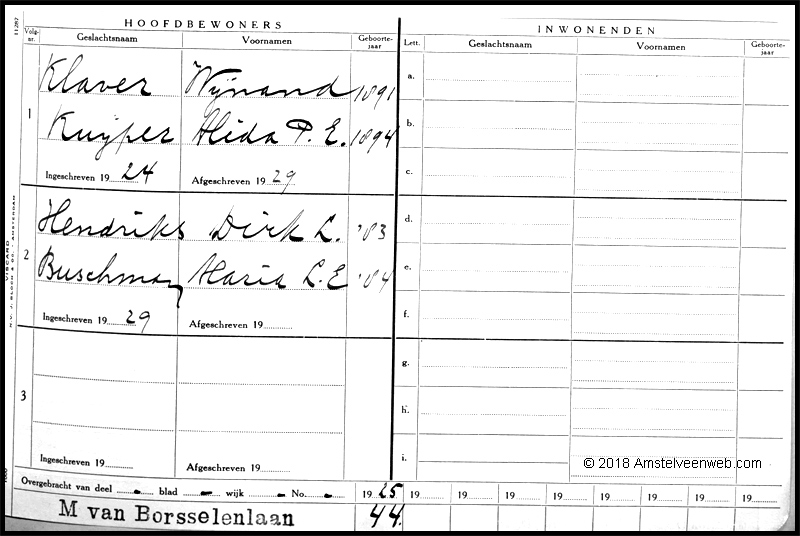 11287
HOOFDBEWONERS
INWONENDEN
Volg-nr.
Geslachtsnaam
Voornamen
Geboorte-jaar
Lett.
Geslachtsnaam
Voornamen
Geboorte-jaar
1
Klaver Wijnand 1891
Kuijper Alida P. E. 1894
Ingeschreven 1924 Afgeschreven 1929
2
Hendriks Dirk L. '83
Buschman Maria L. E '84
Ingeschreven 1929 Afgeschreven 19
3
Ingeschreven 19 Afgeschreven 19
a.
b.
c.
d.
e.
f.
g.
h.
i.
© 2018 Amstelveenweb.com
Overgebracht van deel - blad - wijk - No. - 1925 19 19 19 19 19 19 19 19
M van Borsselenlaan 44.